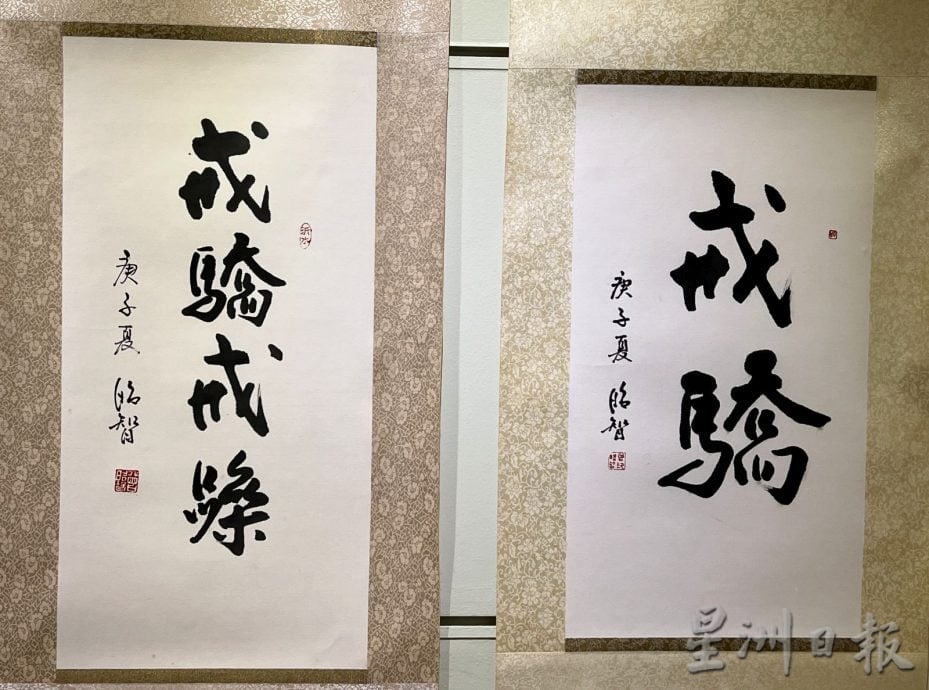 戒驕戒躁
庚子夏 昭智
戒驕
庚子夏 昭智
星洲日報